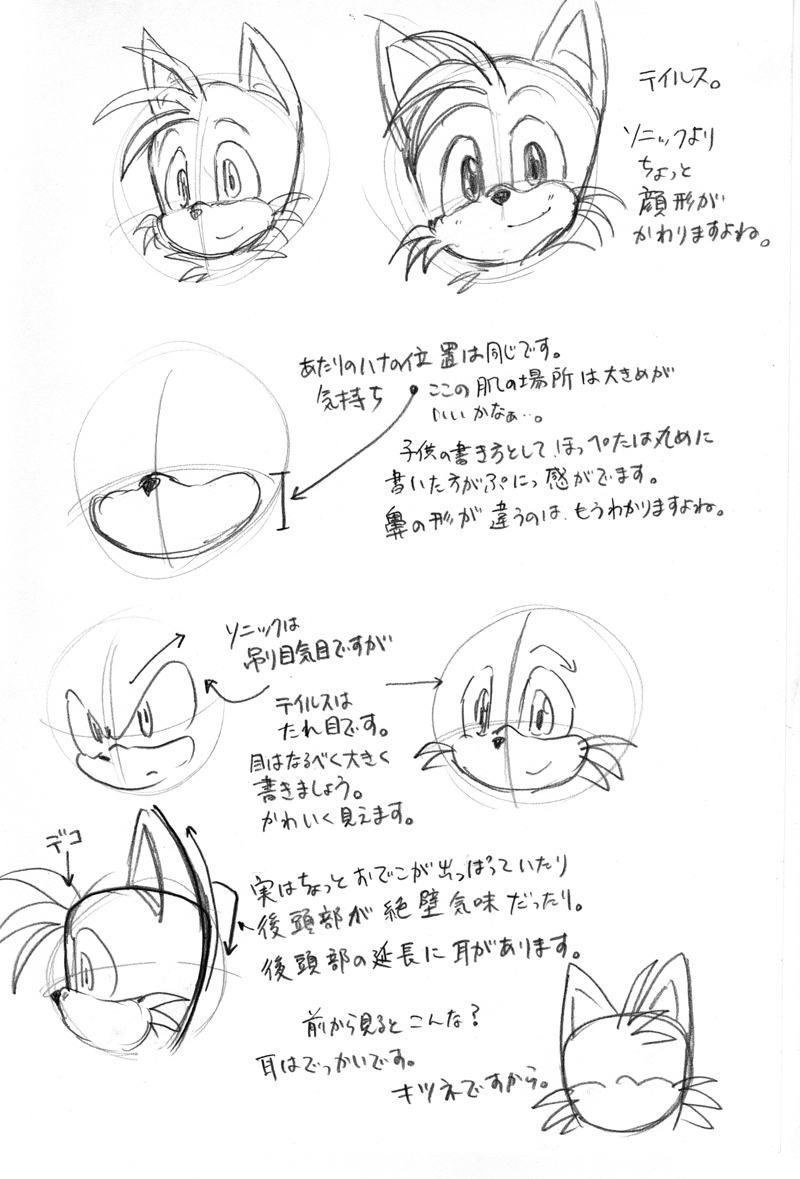 テイルス。
ソニックより
ちょっと
顔形が
かわりますよね。
あたりのハナの位置は同じです。
気持ち
ここの肌の場所は大きめが
いいかなぁ…。
子供の書き方として ほっぺたは丸めに
書いた方がぷにっ感がでます。
鼻の形が違うのは、もうわかりますよね。
ソニックは
吊り目気目ですが
テイルスは
たれ目です。
目はなるべく大きく
書きましょう。
かわいく見えます。
デコ
実はちょっとおでこが出っぱっていたり
後頭部が絶壁気味だったり。
後頭部の延長に耳があります。
前から見るとこんな?
耳はでっかいです。
キツネですから。